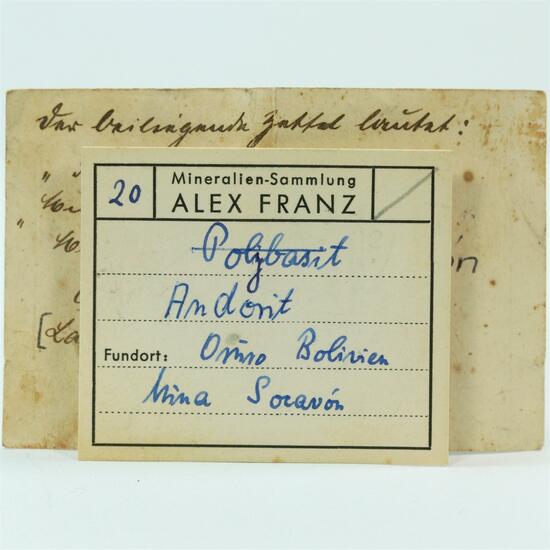 Der beiliegende Zettel lautet:
20
Mineralien-Sammlung
ALEX FRANZ
Polybasit
Andorit
Fundort: Oruro Bolivien
Mina Socavón